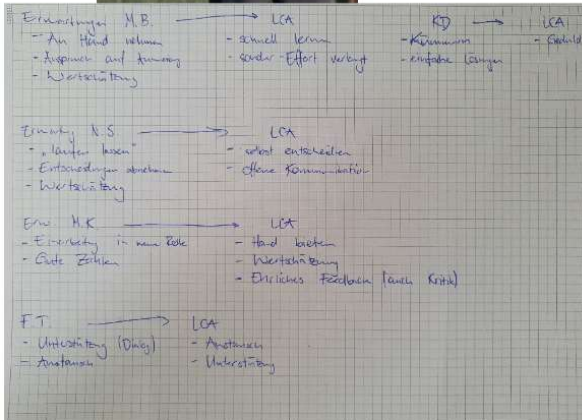 Erwartungen M.B. → LCA
- An Hand nehmen
- Anspruch auf
- Wertschätzung
- schnell lernen
- sonder-Effort verlangt
KD → LCA
- Kümmern
- einfache Lösungen
- Geduld
N.S. → LCA
- "laufen lassen"
- Entscheidungen abnehmen
- Wertschätzung
- selbst entscheiden
- offene Kommunikation
Erw. M.K. → LCA
- Einarbeitung in neue Rolle
- Gute Zahlen
- Hand bieten
- Wertschätzung
- Ehrliches Feedback (auch Kritik)
F.T. → LCA
- Unterstützung (Dialog)
- Austausch
- Austausch
- Unterstützung